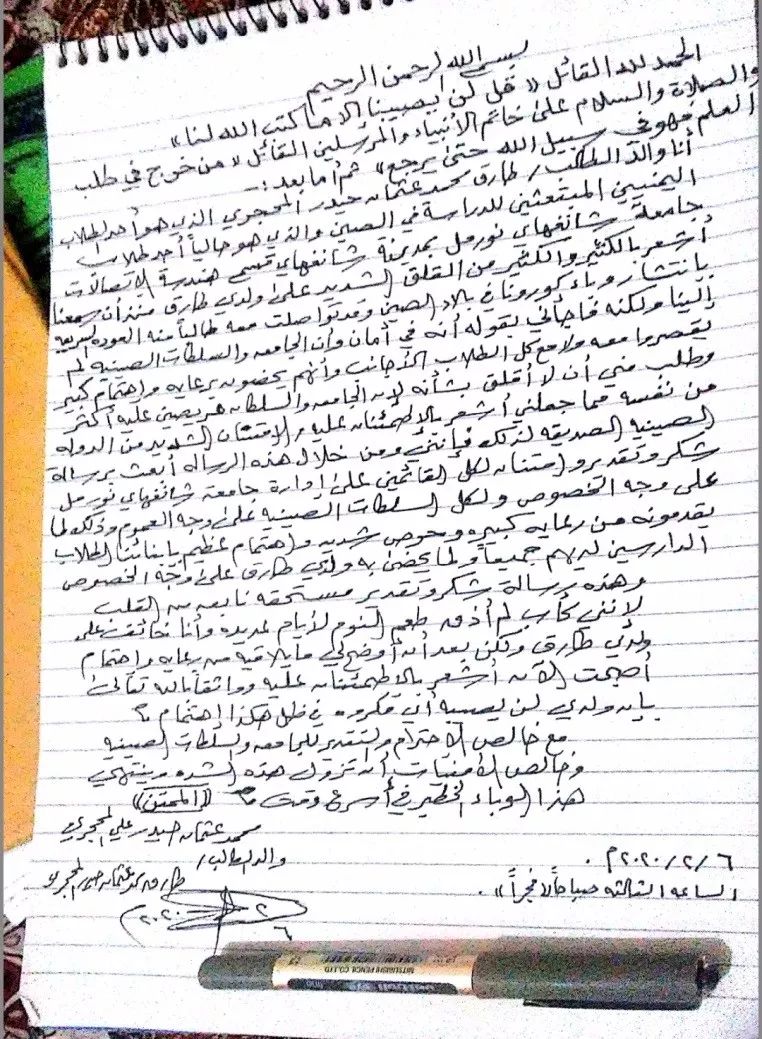 بسم الله الرحمن الرحيم
الحمد لله القائل «قل لن يصيبنا إلا ما كتب الله لنا»
والصلاة والسلام على خاتم الأنبياء والمرسلين القائل «من خرج في طلب
العلم فهو في سبيل الله حتى يرجع» ثم أما بعد :-
أنا والد الطالب / طارق محمد عثمان حيدر المحجري الذي هو أحد الطلاب
اليمنيين المبتعثين للدراسة في الصين والذي هو حالياً أحد طلاب
جامعة شانغهاي نورمل بمدينة شانغهاي قسم هندسة الاتصالات
أشعر بالكثير والكثير من القلق الشديد على ولدي طارق منذ أن سمعنا
بانتشار وباء كورونا في بلاد الصين وقد تواصلت معه طالباً منه العوده السريعه
إلينا ولكنه فاجأني بقوله أنه في أمان وأن الجامعه والسلطات الصينيه لم
يقصروا معه ولا مع كل الطلاب الأجانب وأنهم يحضون برعايه وإهتمام كبير
وطلب مني أن لا أقلق بشأنه لان الجامعه والسلطات حريصين عليه أكثر
من نفسه مما جعلني أشعر بالإطمئنان عليه والإمتنان الشديد من الدوله
الصينيه الصديقه لذلك فإنني ومن خلال هذه الرساله أبعث برسالة
شكر وتقدير وإمتنان لكل القائمين على إدارة جامعة شانغهاي نورمل
على وجه الخصوص ولكل السلطات الصينيه على وجه العموم وذلك لما
يقدمونه من رعايه كبيره وحرص شديد وإهتمام عظيم بابنائنا الطلاب
الدارسين لديهم جميعاً ولما يحضى به ولدي طارق على وجه الخصوص
وهذه رسالة شكر وتقدير مستحقه نابعه من القلب
لانني كأب لم أذق طعم النوم لأيام عديده وأنا خائف على
ولدي طارق ولكن بعد أن أوضح لي ما يلاقيه من رعايه وإهتمام
أصبحت الآن أشعر بالإطمئنان عليه وواثقاً بالله تعالى
بان ولدي لن يصيبه أي مكروه في ظل هكذا إهتمام
مع خالص الإحترام والتقدير للجامعه والسلطات الصينيه
وخالص الأمنيات أن تزول هذه الشده وينتهي
هذا الوباء الخطير في أسرع وقت «الممتن»
محمد عثمان حيدر علي المحجري
والد الطالب /
طارق محمد عثمان حيدر المحجري
٦/٢/٢٠٢٠م .
الساعه الثالثه صباحاً «فجراً» .
٦
٢
٢٠٢٠
MITSUBISHI PENCIL CO.LTD